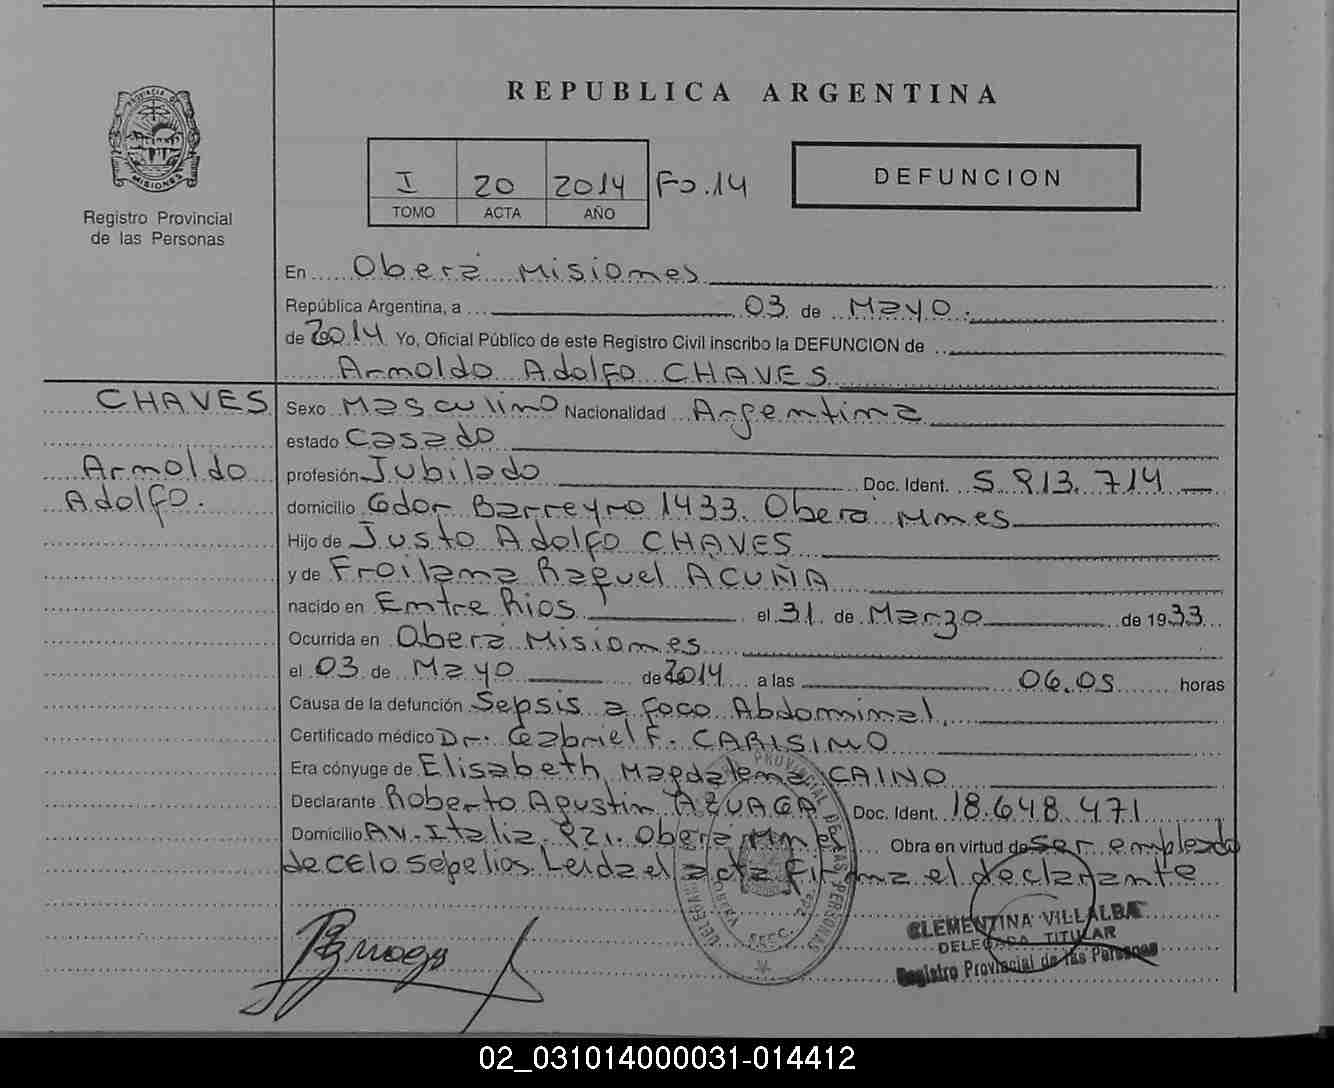 REPUBLICA ARGENTINA
PROVINCIA D
MISIONES
Registro Provincial
de las Personas
I 20 2014 Fo.14
TOMO ACTA AÑO
DEFUNCION
En Oberá Misiones
República Argentina, a 03 de Mayo.
de 2014 Yo, Oficial Público de este Registro Civil inscribo la DEFUNCION de
Arnoldo Adolfo CHAVES
CHAVES
Arnoldo
Adolfo.
Sexo Masculino Nacionalidad Argentina
estado Casado
profesión Jubilado Doc. Ident. 5.813.714
domicilio Gdor Barreyro 1433. Oberá Mnes
Hijo de Justo Adolfo CHAVES
y de Froilana Raquel ACUÑA
nacido en Entre Rios el 31 de Marzo de 1933
Ocurrida en Oberá Misiones
el 03 de Mayo de 2014 a las 06.05 horas
Causa de la defunción Sepsis a foco Abdominal.
Certificado médico Dr. Gabriel F. CARISIMO
Era cónyuge de Elisabeth Magdalena CAINO
Declarante Roberto Agustin AZUAGA Doc. Ident. 18.648.471
Domicilio AV. Italia 821. Oberá Mnes Obra en virtud de ser empleado
de CELO Sepelios. Leida el acta firma el declarante
PROVINCIAL DE LAS PERSONAS
CLEMENTINA VILLALBA
DELEGADA TITULAR
Registro Provincial de las Personas
02_031014000031-014412